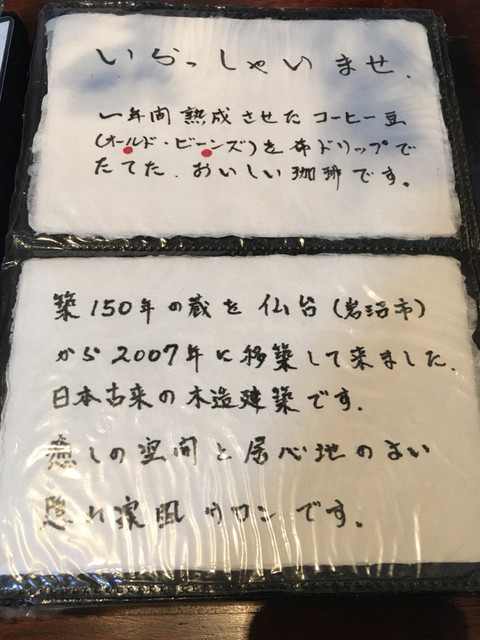 いらっしゃいませ.
一年間熟成させたコーヒー豆
(オールド・ビーンズ)を布ドリップで
たてた、おいしい珈琲です。
築150年の蔵を仙台(岩沼市)
から2007年に移築して来ました.
日本古来の木造建築です.
癒しの空間と居心地のよい
隠れ家風サロンです。